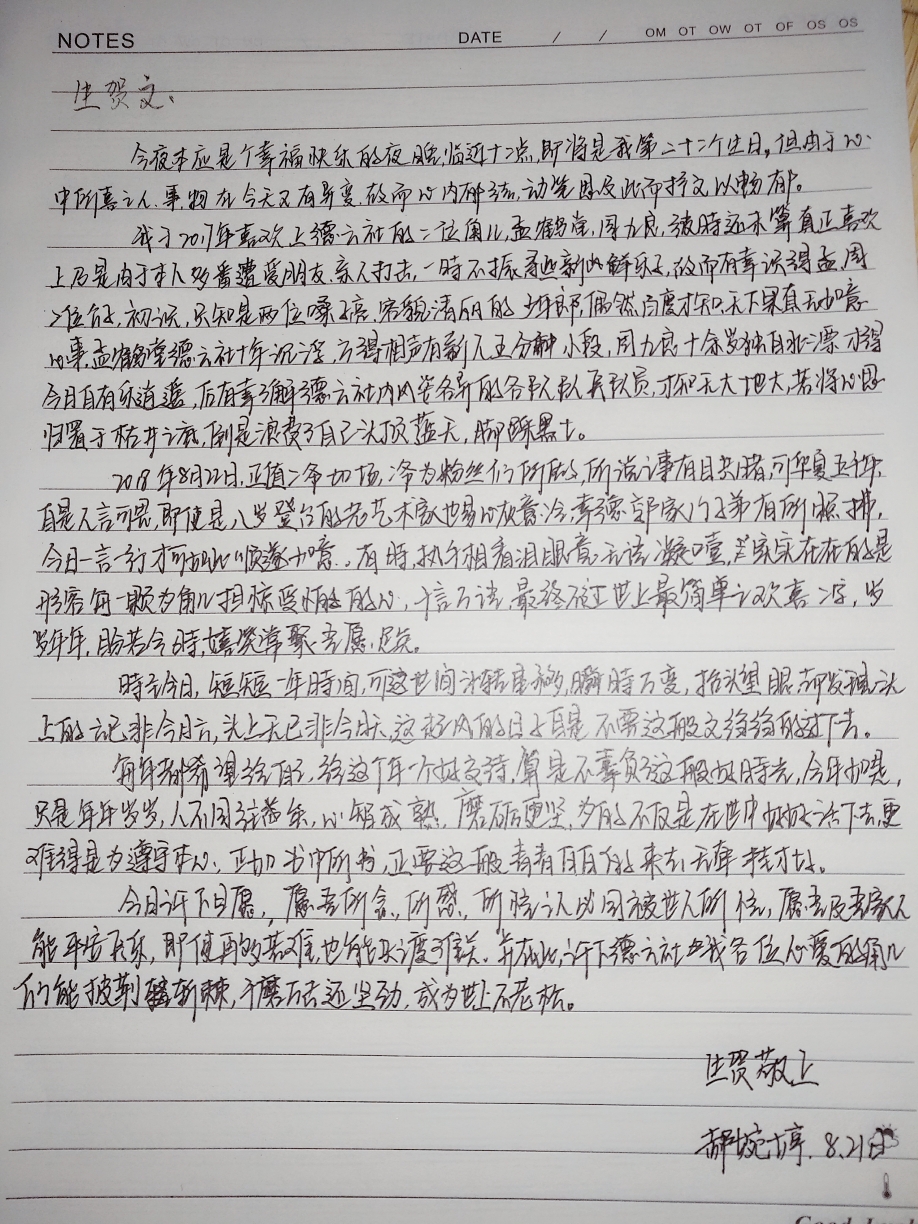 NOTES DATE / / OM OT OW OT OF OS OS
生贺文、
今夜本应是个幸福快乐的夜晚,临近十二点,即将是我第二十二个生日。但由于心
中所喜之人、事、物在今天又有异变,故而心内郁结,动笔因及此而抒文以畅郁。
我于2017年喜欢上德云社的二位角儿,孟鹤堂,周九良,彼時还未算真正喜欢
上乃是由于本人多番遭受朋友、亲人打击,一時不振寻些新鲜乐子,故而有幸识得孟、周
二位角儿,初识,只知是两位嗓子亮、容貌清丽的少年郎,偶然百度才知,天下果真无如意
之事,孟鹤堂德云社十年沉浮,方得相声有新人五分钟小段,周九良十余岁独自北漂才得
今日自有乐逍遥,后有幸了解德云社内风笙各异的各队队员,才知天大地大,若将心思
归置于枯井之底,倒是浪费了自己头顶蓝天,脚踩黑土。
2018年8月22日,正值二爷切场,爷为粉丝们所做,所说之事有目共睹,可华夏五千年
自是人言可畏,即使是八岁登台的老艺术家也易心灰意冷,幸德郭家门子弟有所照拂,
今日一言一行才可如此顺遂如意。有時,执手相看泪眼竟无语凝噎,实实在在的是
形容每一颗为角儿担惊受怕的心,千言万语,最终不过世上最简单之欢喜二字,岁
岁年年,盼若今時,嬉笑常聚,吾愿足矣。
時至今日,短短一年時间,可这世间斗转星移,瞬時万变,抬头望眼,却发现头
上的云已非今日云,头上天已非今日天,这起风的日子自是不需这般文绉绉的过下去。
每年都希望给自己,给这个年一个好交待,算是不辜负这般好時光,今年如是,
只是年年岁岁,人不同往益条,心智成熟,磨砺更坚,为的不仅是在世中好好活下去,更
难得是为遵守本心,正如书中所书,正要这般青青白白的来去无牵挂才好。
今日许下日愿,愿吾所念、所感、所惦之人必同被世人所惦,愿吾及吾家人
能平安喜乐,即使再多苦难,也能共渡难关。并在此,许下德云社我各位心爱的角儿
们能披荆斩棘,千磨万击还坚劲,成为世上不老松。
生贺敬上
郝婉婷. 8.21日